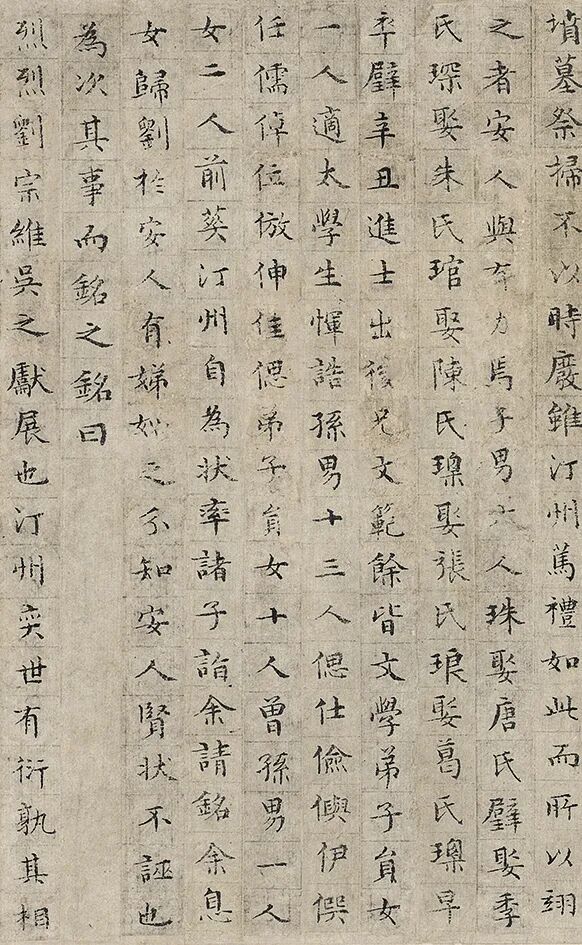 墳墓祭掃不以時廢雖汀州篤禮如此而所以翊
之者安人與有力焉子男六人珠娶唐氏璧娶季
氏琛娶朱氏琯娶陳氏璪娶張氏琅娶葛氏璪早
卒璧辛丑進士出後兄文範餘皆文學弟子員女
一人適太學生惲誥孫男十三人偲仕儉傆伊僎
任儒倬位倣伸佳偲弟子員女十人曾孫男一人
女二人前葵汀州自為狀率諸子詣余請銘余息
女歸劉於安人有娣姒之分知安人賢狀不誣也
為次其事而銘之銘曰
烈烈劉宗維吳之獻展也汀州奕世有衍孰其相